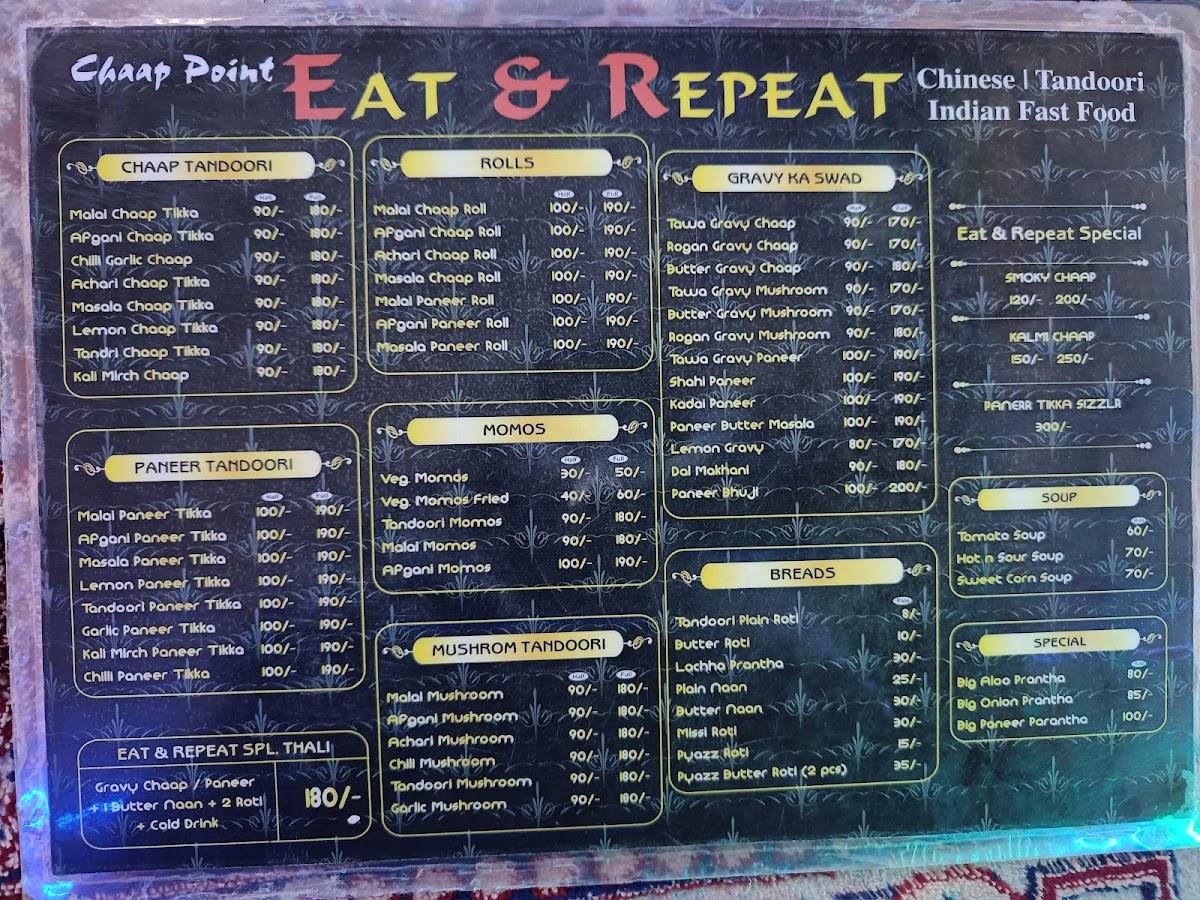 Chaap Point
EAT & REPEAT
Chinese | Tandoori
Indian Fast Food
CHAAP TANDOORI
Half Full
Malai Chaap Tikka 90/- 180/-
Afgani Chaap Tikka 90/- 180/-
Chilli Garlic Chaap 90/- 180/-
Achari Chaap Tikka 90/- 180/-
Masala Chaap Tikka 90/- 180/-
Lemon Chaap Tikka 90/- 180/-
Tandri Chaap Tikka 90/- 180/-
Kali Mirch Chaap 90/- 180/-
PANEER TANDOORI
Half Full
Malai Paneer Tikka 100/- 190/-
Afgani Paneer Tikka 100/- 190/-
Masala Paneer Tikka 100/- 190/-
Lemon Paneer Tikka 100/- 190/-
Tandoori Paneer Tikka 100/- 190/-
Garlic Paneer Tikka 100/- 190/-
Kali Mirch Paneer Tikka 100/- 190/-
Chilli Paneer Tikka 100/- 190/-
EAT & REPEAT SPL. THALI
Gravy Chaap / Paneer
+ 1 Butter Naan + 2 Roti
+ Cold Drink
180/-
ROLLS
Half Full
Malai Chaap Roll 100/- 190/-
Afgani Chaap Roll 100/- 190/-
Achari Chaap Roll 100/- 190/-
Masala Chaap Roll 100/- 190/-
Malai Paneer Roll 100/- 190/-
Afgani Paneer Roll 100/- 190/-
Masala Paneer Roll 100/- 190/-
MOMOS
Half Full
Veg. Momos 30/- 50/-
Veg. Momos Fried 40/- 60/-
Tandoori Momos 90/- 180/-
Malai Momos 90/- 180/-
Afgani Momos 100/- 190/-
MUSHROM TANDOORI
Half Full
Malai Mushroom 90/- 180/-
Afgani Mushroom 90/- 180/-
Achari Mushroom 90/- 180/-
Chili Mushroom 90/- 180/-
Tandoori Mushroom 90/- 180/-
Garlic Mushroom 90/- 180/-
GRAVY KA SWAD
Half Full
Tawa Gravy Chaap 90/- 170/-
Rogan Gravy Chaap 90/- 170/-
Butter Gravy Chaap 90/- 180/-
Tawa Gravy Mushroom 90/- 170/-
Butter Gravy Mushroom 90/- 170/-
Rogan Gravy Mushroom 90/- 180/-
Tawa Gravy Paneer 100/- 190/-
Shahi Paneer 100/- 190/-
Kadai Paneer 100/- 190/-
Paneer Butter Masala 100/- 190/-
Lemon Gravy 80/- 170/-
Dal Makhani 90/- 180/-
Paneer Bhuji 100/- 200/-
BREADS
Rate
Tandoori Plain Roti 8/-
Butter Roti 10/-
Lachha Prantha 30/-
Plain Naan 25/-
Butter Naan 30/-
Missi Roti 30/-
Pyazz Roti 15/-
Pyazz Butter Roti (2 pcs) 35/-
Eat & Repeat Special
SMOKY CHAAP
120/- 200/-
KALMI CHAAP
150/- 250/-
PANERR TIKKA SIZZLR
300/-
SOUP
Tomato Soup 60/-
Hot n Sour Soup 70/-
Sweet Corn Soup 70/-
SPECIAL
Big Aloo Prantha 80/-
Big Onion Prantha 85/-
Big Paneer Parantha 100/-